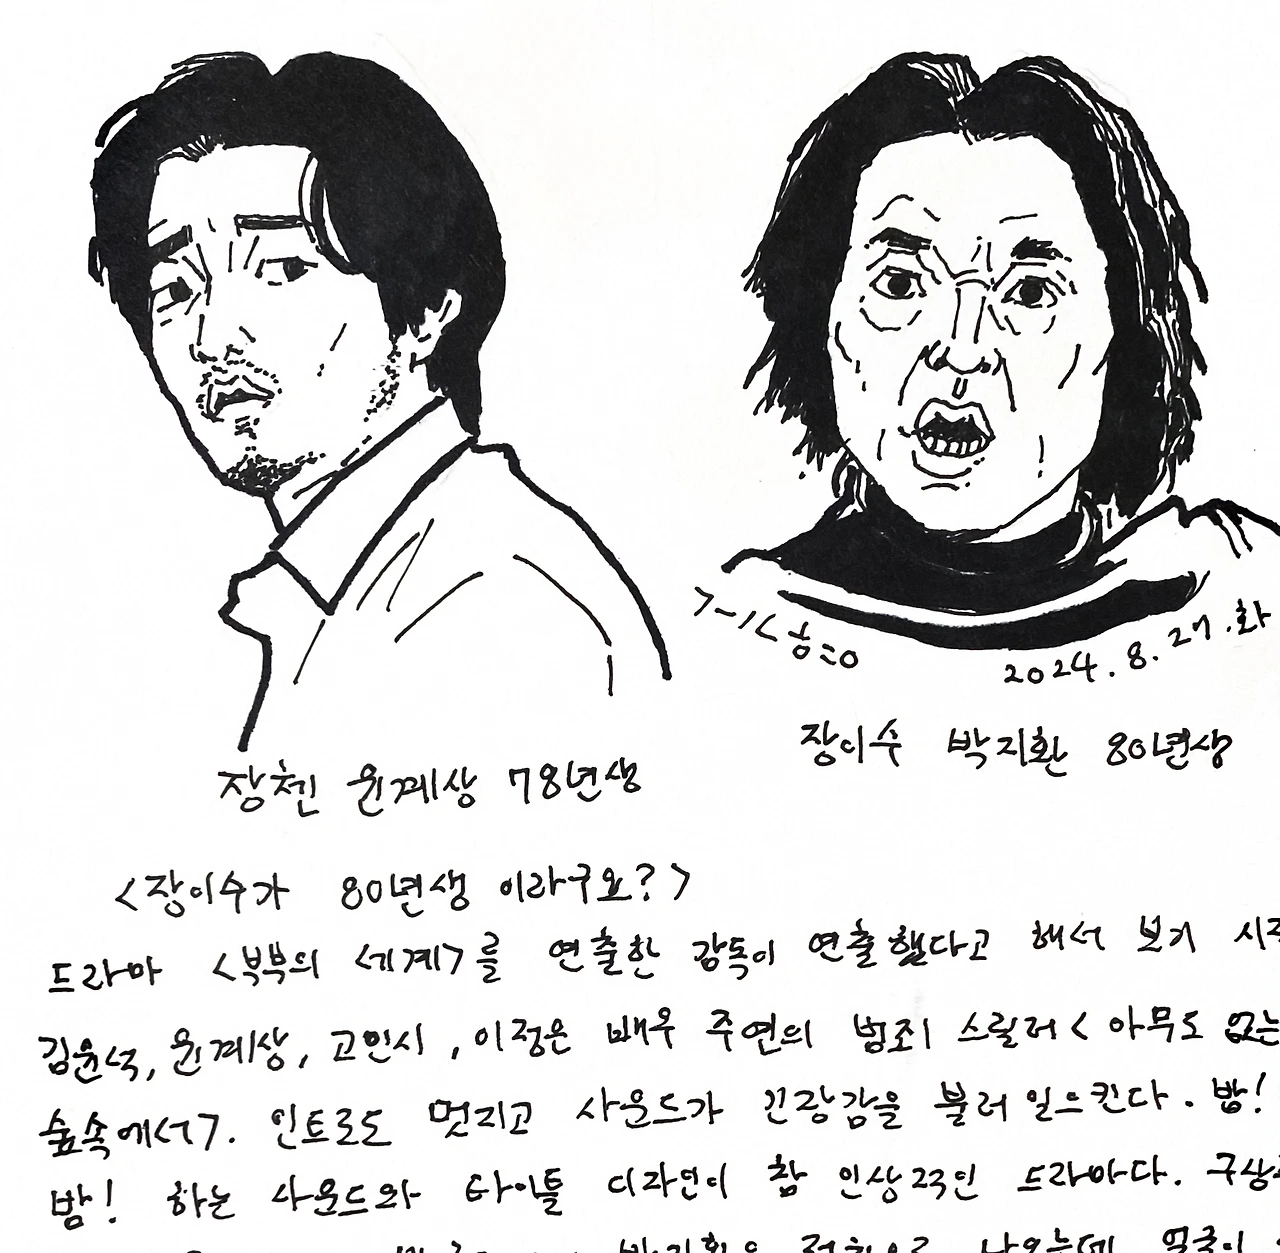 2024.8.27.화
장이수 박지환 80년생
장첸 윤계상 78년생
<장이수가 80년생 이라구요?>
드라마 <부부의 세계>를 연출한 감독이 연출했다고 해서 보기
김윤석, 윤계상, 고민시, 이정은 배우 주연의 범죄 스릴러 <아무도 없는
숲속에서>. 인트로도 멋지고 사운드가 긴장감을 불러 일으킨다. 밤!
밤! 하는 사운드와 타이틀 디자인이 참 인상적인 드라마다.